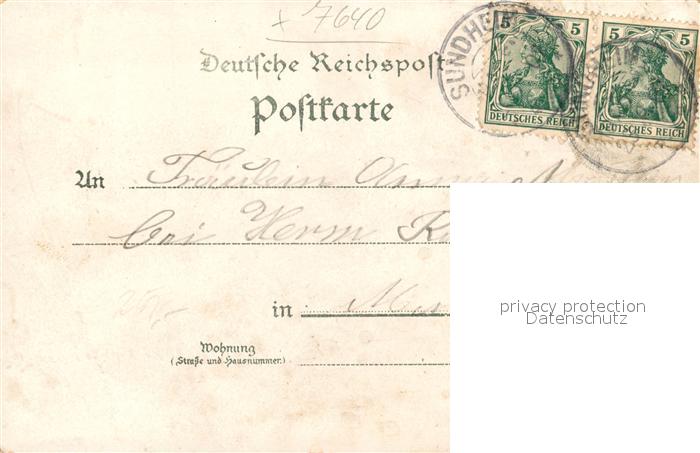 + 7640
Deutsche Reichspost
Postkarte
SUNDHE
5 5
DEUTSCHES REICH
5 5
DEUTSCHES REICH
An Fräulein Anna
bei Herrn
in
Wohnung
(Straße und Hausnummer.)
privacy protection
Datenschutz